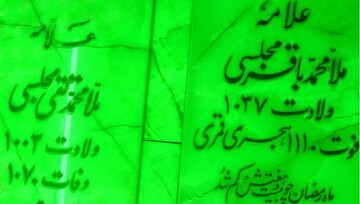 علامه
ملا محمد باقر مجلسی
ولادت ۱۰۳۷
فوت ۱۱۱۰ هجری قمری
ماه رمضان چو بیست و هفتش کم شد
علامه
ملا محمد تقی مجلسی
ولادت ۱۰۰۳
وفات ۱۰۷۰